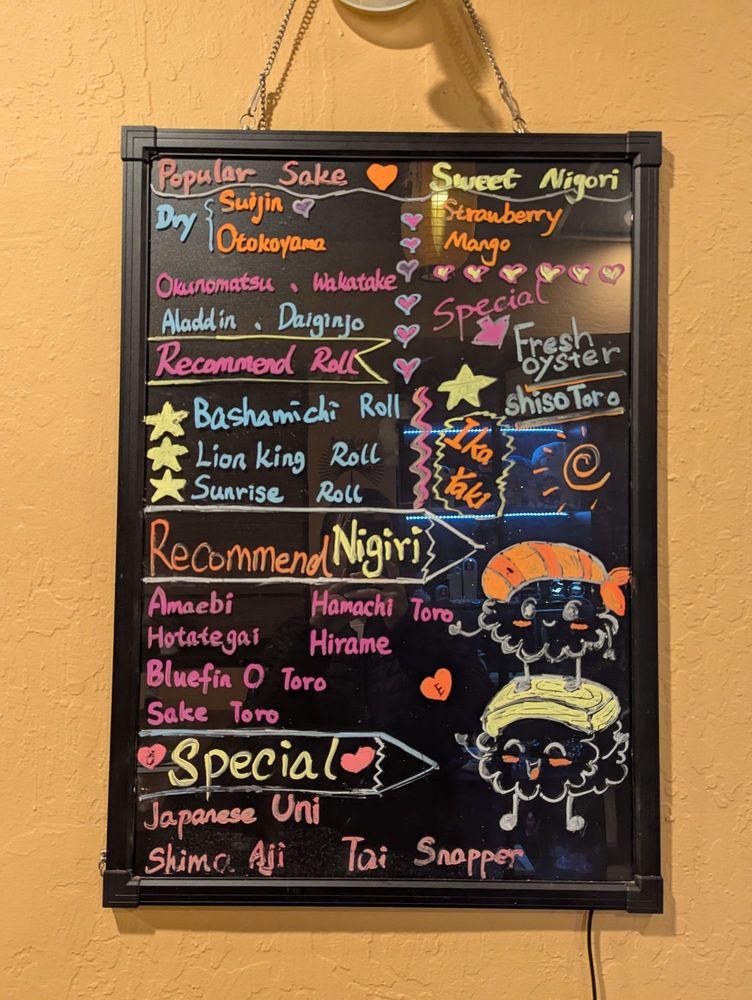 Popular Sake
Dry
Suijin
Otokoyama
Okunomatsu 、 Wakatake
Aladdin 、 Daiginjo
Sweet Nigori
Strawberry
Mango
Special
Fresh
oyster
shiso Toro
Ika
Yaki
Recommend Roll
Bashamichi Roll
Lion king Roll
Sunrise Roll
Recommend Nigiri
Amaebi
Hamachi Toro
Hotategai
Hirame
Bluefin O Toro
Sake Toro
Special
Japanese Uni
Shima Aji
Tai Snapper